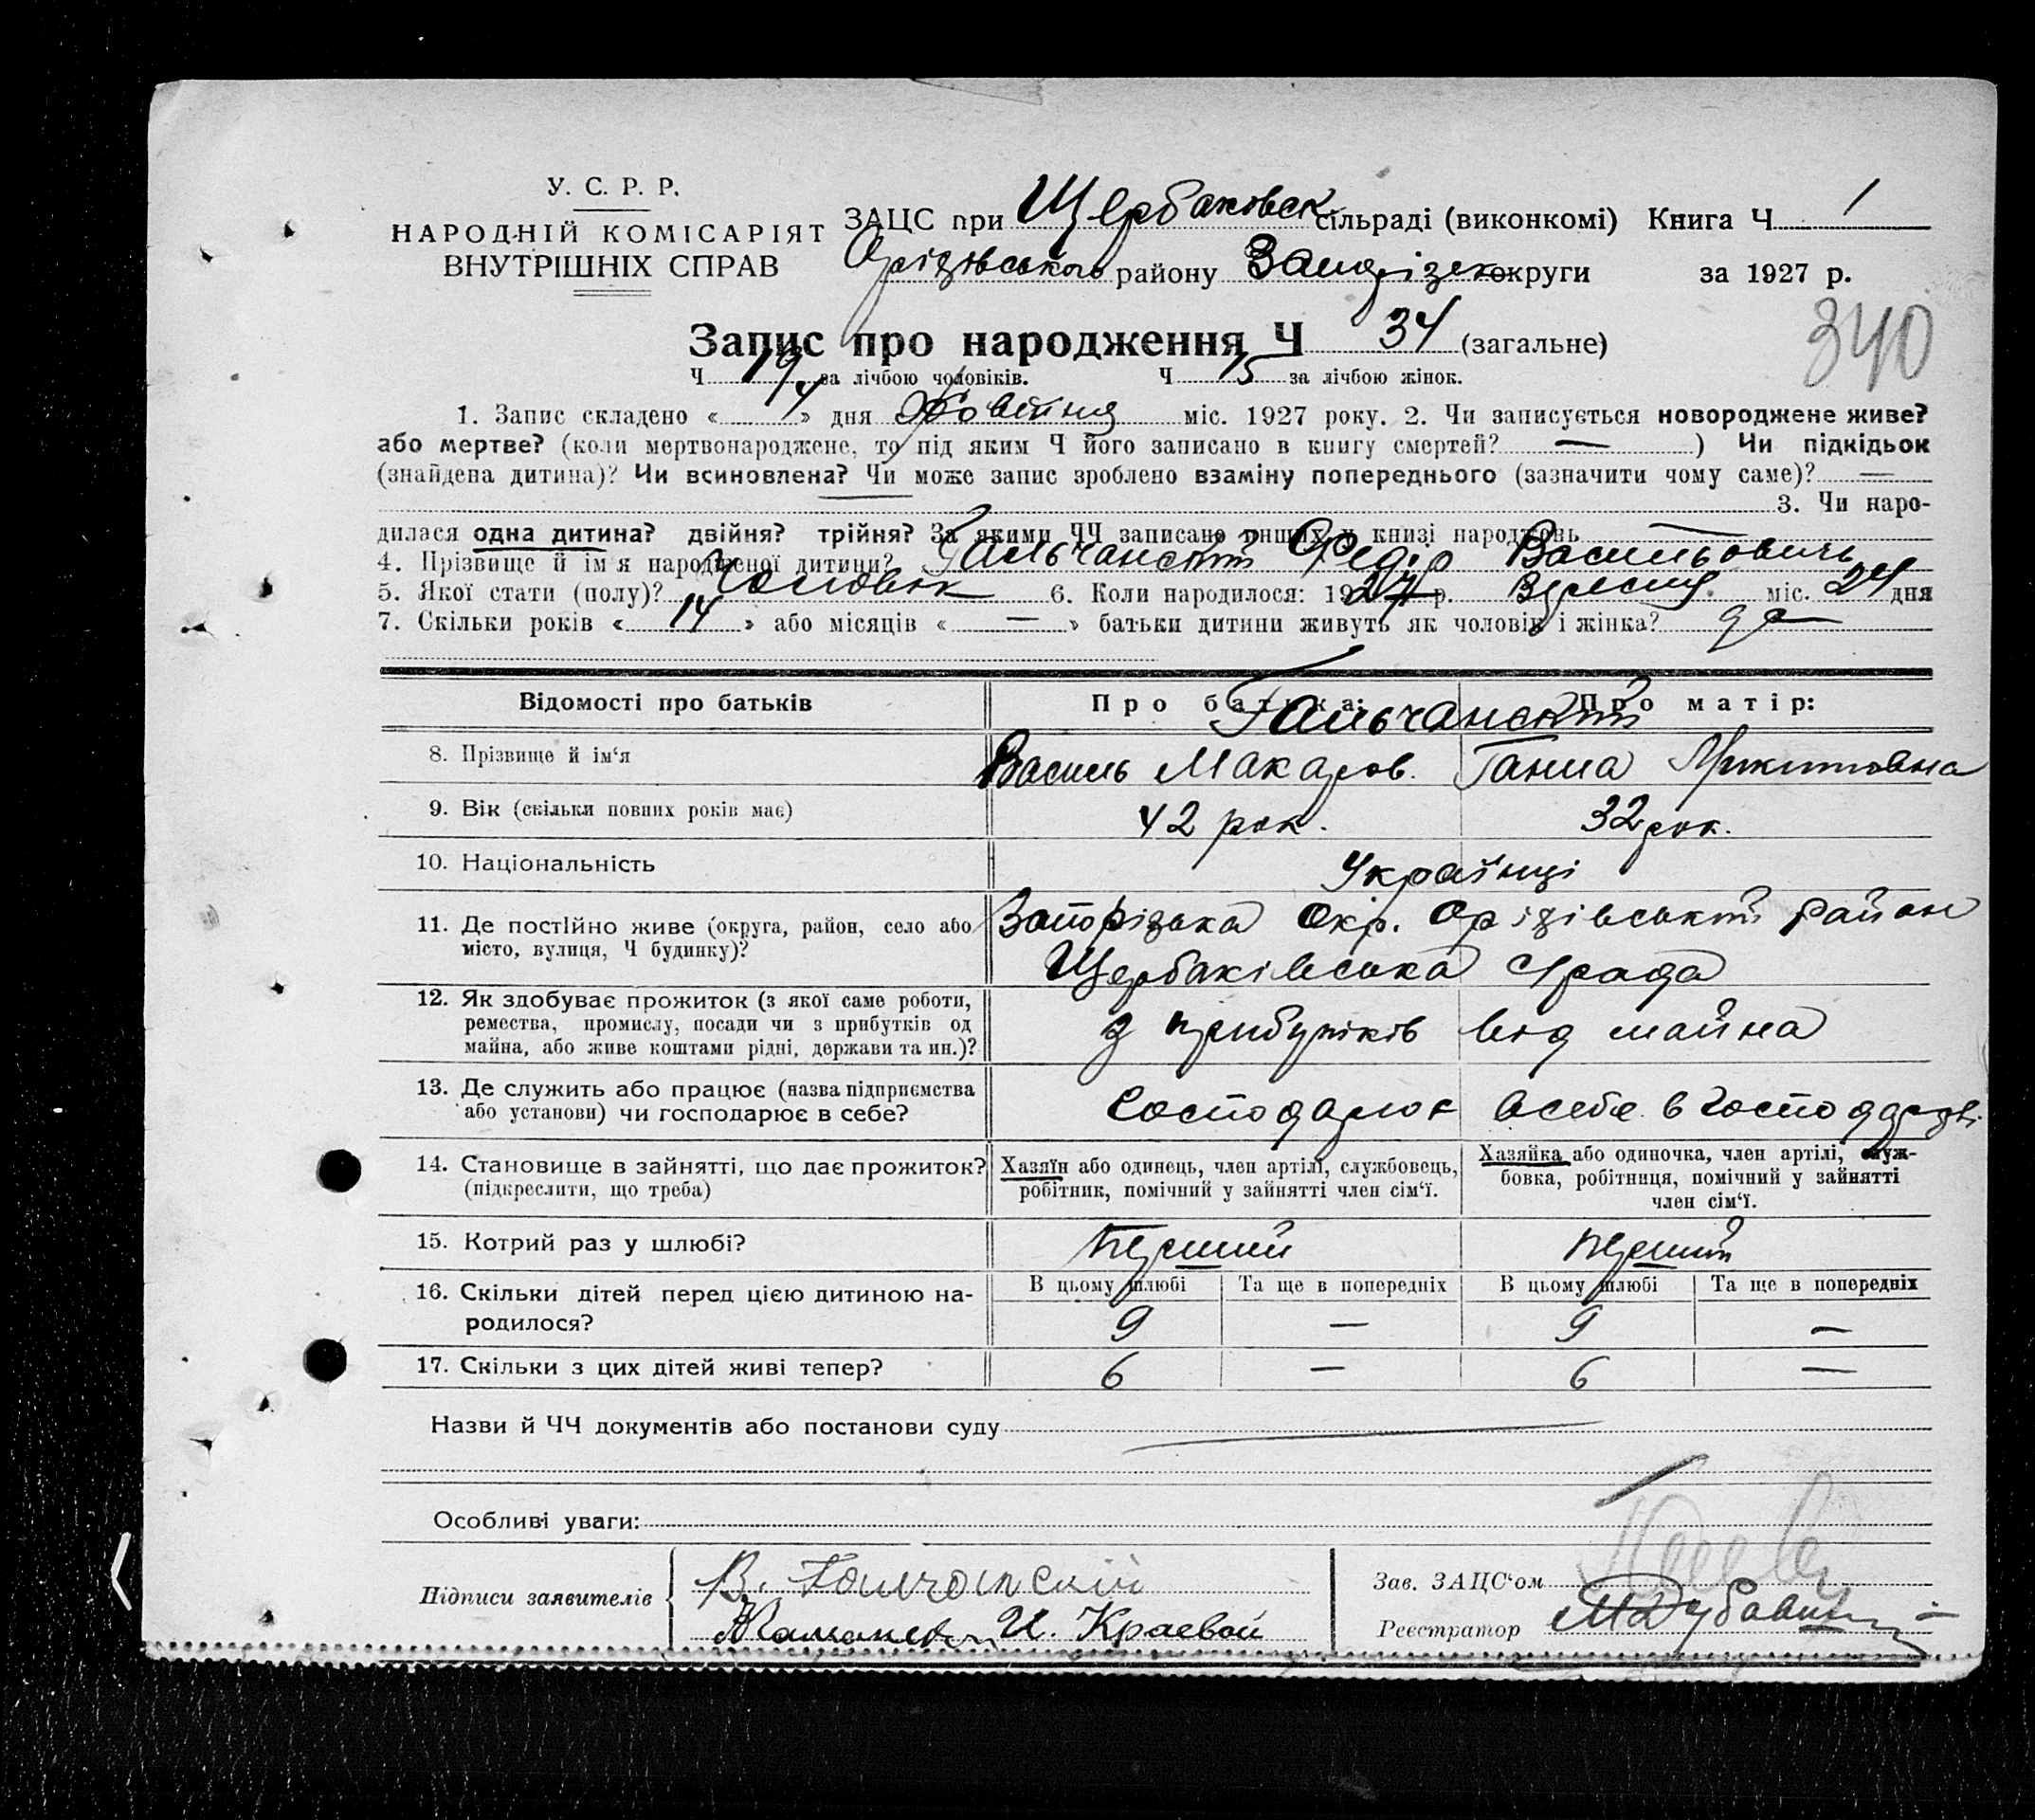 У. С. Р. Р.
НАРОДНІЙ КОМІСАРІЯТ
ВНУТРІШНІХ СПРАВ
ЗАЦС при Щербаковск сільраді (виконкомі) Книга Ч 1
Оріхівського району Запорізьк округи за 1927 р.
340
Запис про народження Ч 34 (загальне)
Ч 19 за лічбою чоловіків. Ч 15 за лічбою жінок.
1. Запис складено « 4 » дня Жовтня міс. 1927 року. 2. Чи записується новороджене живе?
або мертве? (коли мертвонароджене, то під яким Ч його записано в книгу смертей? — ) Чи підкідьок
(знайдена дитина)? Чи всиновлена? Чи може запис зроблено взаміну попереднього (зазначити чому саме)? —
3. Чи наро-
дилася одна дитина? двійня? трійня? За якими ЧЧ записано инших у книзі народжень
4. Прізвище й ім'я народженої дитини? Гальчанский Федір Васильович
5. Якої стати (полу)? Чоловік 6. Коли народилося: 1927 р. Вересня міс. 24 дня
7. Скільки років « 14 » або місяців « — » батьки дитини живуть як чоловік і жінка? да
Відомості про батьків Про батька: Про матір:
Гальчанский
8. Прізвище й ім'я Василь Макаров. Ганна Микитовна
9. Вік (скільки повних років має) 42 рок. 32 рок.
10. Національність Українці
11. Де постійно живе (округа, район, село або Запорізька Окр. Оріхівський район
місто, вулиця, Ч будинку)? Щербаківська С/рада
12. Як здобуває прожиток (з якої саме роботи,
ремества, промислу, посади чи з прибутків од з прибутків від майна
майна, або живе коштами рідні, держави та ин.)?
13. Де служить або працює (назва підприємства
або установи) чи господарює в себе? Господарює всебе в господарстві
14. Становище в зайнятті, що дає прожиток? Хазяїн або одинець, член артілі, службовець, Хазяйка або одиночка, член артілі, служ-
(підкреслити, що треба) робітник, помічний у зайнятті член сім'ї. бовка, робітниця, помічний у зайнятті
член сім'ї.
15. Котрий раз у шлюбі? перший перший
16. Скільки дітей перед цією дитиною на- В цьому шлюбі Та ще в попередніх В цьому шлюбі Та ще в попередніх
родилося? 9 — 9 —
17. Скільки з цих дітей живі тепер? 6 — 6 —
Назви й ЧЧ документів або постанови суду
Особливі уваги:
Підписи заявителів В. Галчанский
И. Краевой
Зав. ЗАЦС'ом
Реєстратор